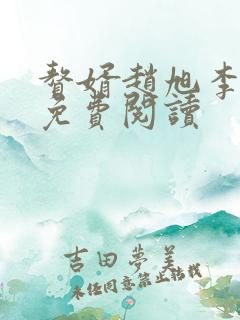 赘婿趙旭李
免費閱讀
吉田夢美
未经同意禁止转载